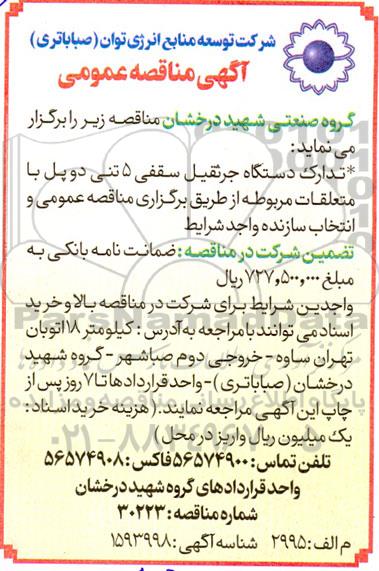 شرکت توسعه منابع انرژی توان (صباباتری)
آگهی مناقصه عمومی
گروه صنعتی شهید درخشان مناقصه زیر را برگزار
می نماید:
*تدارک دستگاه جرثقیل سقفی ۵ تنی دو پل با
متعلقات مربوطه از طریق برگزاری مناقصه عمومی و
انتخاب سازنده واجد شرایط
تضمین شرکت در مناقصه: ضمانت نامه بانکی به
مبلغ ۷۲۷,۵۰۰,۰۰۰ ریال
واجدین شرایط برای شرکت در مناقصه بالا و خرید
اسناد می توانند با مراجعه به آدرس: کیلومتر ۱۸ اتوبان
تهران ساوه - خروجی دوم صباشهر - گروه شهید
درخشان (صباباتری) - واحد قراردادها تا ۷ روز پس از
چاپ این آگهی مراجعه نمایند. (هزینه خرید اسناد:
یک میلیون ریال واریز در محل)
تلفن تماس: ۵۶۵۷۴۹۰۰ فاکس: ۵۶۵۷۴۹۰۸
واحد قراردادهای گروه شهید درخشان
شماره مناقصه: ۳۰۲۲۳
م الف: ۲۹۹۵ شناسه آگهی: ۱۵۹۳۹۹۸
ParsNamadData
پایگاه اطلاع رسانی مناقصه و مزایده
۰۲۱-۸۸۳۴۹۶۷۰-۵